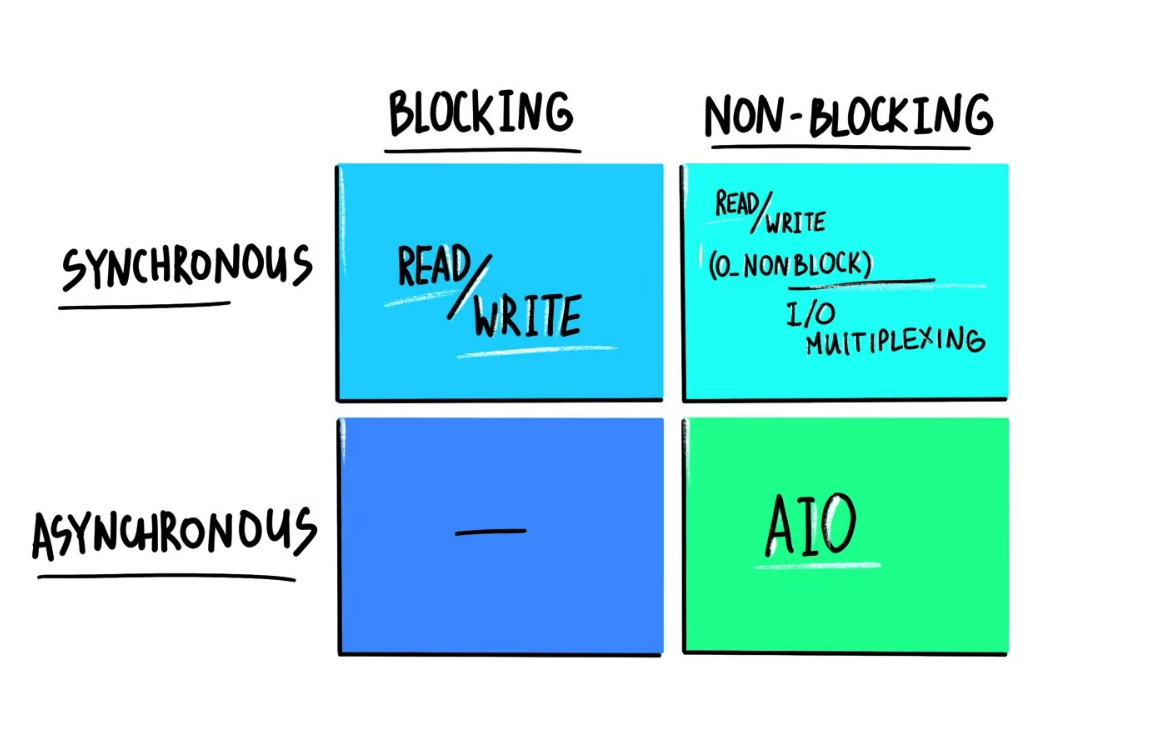 BLOCKING
NON-BLOCKING
SYNCHRONOUS
READ/
WRITE
READ/
WRITE
(O_NONBLOCK)
I/O
MUITIPLEXING
ASYNCHRONOUS
—
AIO